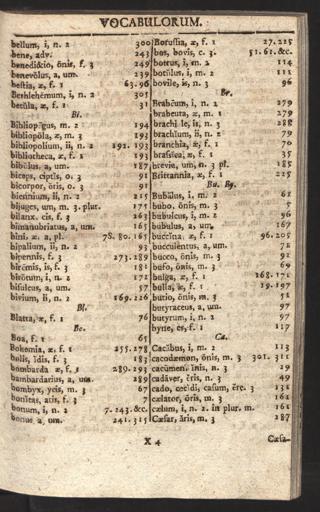 VOCABULORUM.
bellum, i, n. 2 300
bene, adv. 243
benedictio, ōnis, f. 3 249
benevŏlus, a, um. 239
bestia, æ, f. 1 63.96
Bethlehēmum, i, n. 2 305
betŭla, æ, f. 1 31
Bi.
Bibliopēgus, m. 2 194
bibliopōla, æ, m. 3 193
bibliopolium, ii, n. 2 192. 193
bibliotheca, æ, f. 1 193
bibŭlus, a, um. 187
biceps, cipĭtis, o. 3 91
bicorpor, ŏris, o. 3 91
biennium, ii, n. 2 215
bijuges, um, m. 3. plur. 175
bilanx. cis, f. 3 263
bimanubriatus, a, um. 165
bini. æ. a, pl. 78. 80. 165
bipalium, ii, n. 2 93
bipennis, f. 3 273.289
birēmis, is, f. 3 181
bisōtum, i, n. 2 172
bifulcus, a, um. 57
bivium, ii, n. 2 169.226
Bl.
Blatta, æ, f. 1 76
Bo.
Boa, f. 1 65
Bohemia, æ. f. 1 255.278
bolis, ĭdis, f. 3 183
bombarda æ, f. 1 289.293
bambardarius, a, um. 289
bombyx, ycis, m. 3 67
bonĭtas, atis, f. 3 7
bonum, i, n. 2 7. 243. &c.
bonus a, um. 241.315
Borussia, æ, f. 1 27.225
bos, bovis, c. 3. 51. 61. &c.
botrus, i, m. 2 114
botŭlus, i, m. 2 111
bovile, is, n. 3 96
Br.
Brabēum, i, n. 2 279
brabeuta, æ, m. 1 279
brachile, is, n. 3 288
brachium, ii, n. 2 79
branchia, æ, f. 1 70
brassica, æ, f. 1 35
brevia, um, n. 3 pl. 185
Brittannia, æ, f. 1 225
Bu. By.
Bubălus, i, m. 2 61
bubo, ōnis, m. 3 5
bubulcus, i, m. 2 96
bubulus, a, um. 167
buccĭna, æ, f. 1 96.205
bucculentus, a, um. 72
bucco, ōnis, m. 3 91
bufo, ōnis, m. 3 69
bulga, æ, f. 1 168.171
bulla, æ, f. 1 19.197
butio, ōnis, m. 3 51
butyraceus, a, um. 97
butyrum, i, n. 2 97
byrse, es, f. 1 117
Ca.
Cacābus, i, m. 2 113
cacodæmon, ŏnis, m. 3 301. 311
cacūmen, ĭnis, n. 3 19
cadāver, ĕris, n. 3 49
cado, cecĭdi, casum, ĕre, 3 131
cælator, ōris, m. 3 161
cælum, i, n. 2. in plur. m. 161
Cæsar, ăris, m. 3 287
X 4
Cæsa-